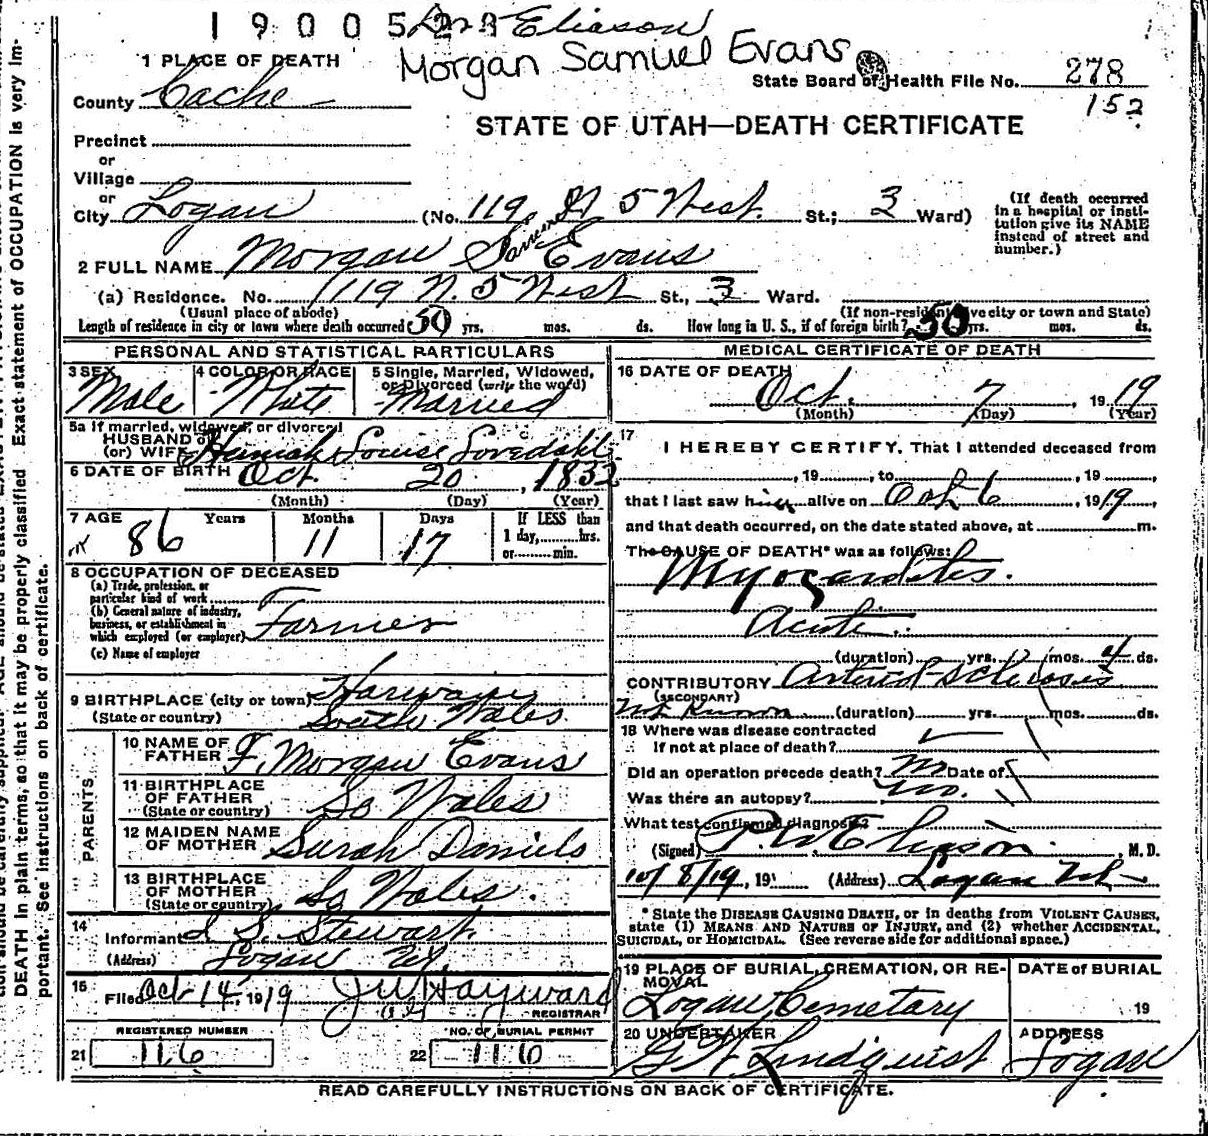 1 9 0 0 5 2
Eliason
Morgan Samuel Evans
1 PLACE OF DEATH
State Board of Health File No. 278
152
County Cache
STATE OF UTAH—DEATH CERTIFICATE
Precinct
or
Village
or
City Logan (No. 119 N. 5 West St.; 3 Ward)
(If death occurred in a hospital or insti-
tution give its NAME
instead of street and
number.)
2 FULL NAME Morgan S Evans
(a) Residence. No. 119 N. 5 West St., 3 Ward.
(Usual place of abode)
(If non-resident give city or town and State)
Length of residence in city or town where death occurred 50 yrs. mos. ds. How long in U. S., if of foreign birth? 50 yrs. mos. ds.
PERSONAL AND STATISTICAL PARTICULARS
3 SEX
Male
4 COLOR OR RACE
White
5 Single, Married, Widowed,
or Divorced (write the word)
Married
5a If married, widowed, or divorced
HUSBAND of
(or) WIFE Louise
6 DATE OF BIRTH Oct. 20, 1832
(Month) (Day) (Year)
7 AGE Years Months Days If LESS than
1 day, hrs.
or min.
86 11 17
8 OCCUPATION OF DECEASED
(a) Trade, profession, or
particular kind of work
(b) General nature of industry,
business, or establishment in
which employed (or employer) Farmer
(c) Name of employer
9 BIRTHPLACE (city or town)
(State or country) South Wales
PARENTS
10 NAME OF
FATHER F. Morgan Evans
11 BIRTHPLACE
OF FATHER
(State or country) So Wales
12 MAIDEN NAME
OF MOTHER Sarah Daniels
13 BIRTHPLACE
OF MOTHER
(State or country) So Wales.
14
Informant S. Stewart
(Address) Logan Ut.
15
Filed Oct 14 1919 J W Hayward
REGISTRAR
REGISTERED NUMBER
21 116
NO. OF BURIAL PERMIT
22 116
MEDICAL CERTIFICATE OF DEATH
16 DATE OF DEATH
Oct. 7, 1919
(Month) (Day) (Year)
17
I HEREBY CERTIFY, That I attended deceased from
, 19 , to , 19 ,
that I last saw him alive on Oct 6, 1919
and that death occurred, on the date stated above, at m.
The CAUSE OF DEATH* was as follows:
Myocarditis.
Acute.
(duration) yrs. mos. 4 ds.
CONTRIBUTORY Arterio-sclerosis
(SECONDARY)
Not Known (duration) yrs. mos. ds.
18 Where was disease contracted
If not at place of death?
Did an operation precede death? No Date of
Was there an autopsy? No.
What test confirmed diagnosis?
(Signed) Eliason. M. D.
10/8/19, 19 (Address) Logan Utah
* State the DISEASE CAUSING DEATH, or in deaths from VIOLENT CAUSES,
state (1) MEANS AND NATURE OF INJURY, and (2) whether ACCIDENTAL,
SUICIDAL, or HOMICIDAL. (See reverse side for additional space.)
19 PLACE OF BURIAL, CREMATION, OR RE-
MOVAL
Logan Cemetary
DATE of BURIAL
19
20 UNDERTAKER
Lindquist
ADDRESS
Logan
READ CAREFULLY INSTRUCTIONS ON BACK OF CERTIFICATE.
DEATH in plain terms, so that it may be properly classified. Exact statement of OCCUPATION is very im-
portant. See instructions on back of certificate.